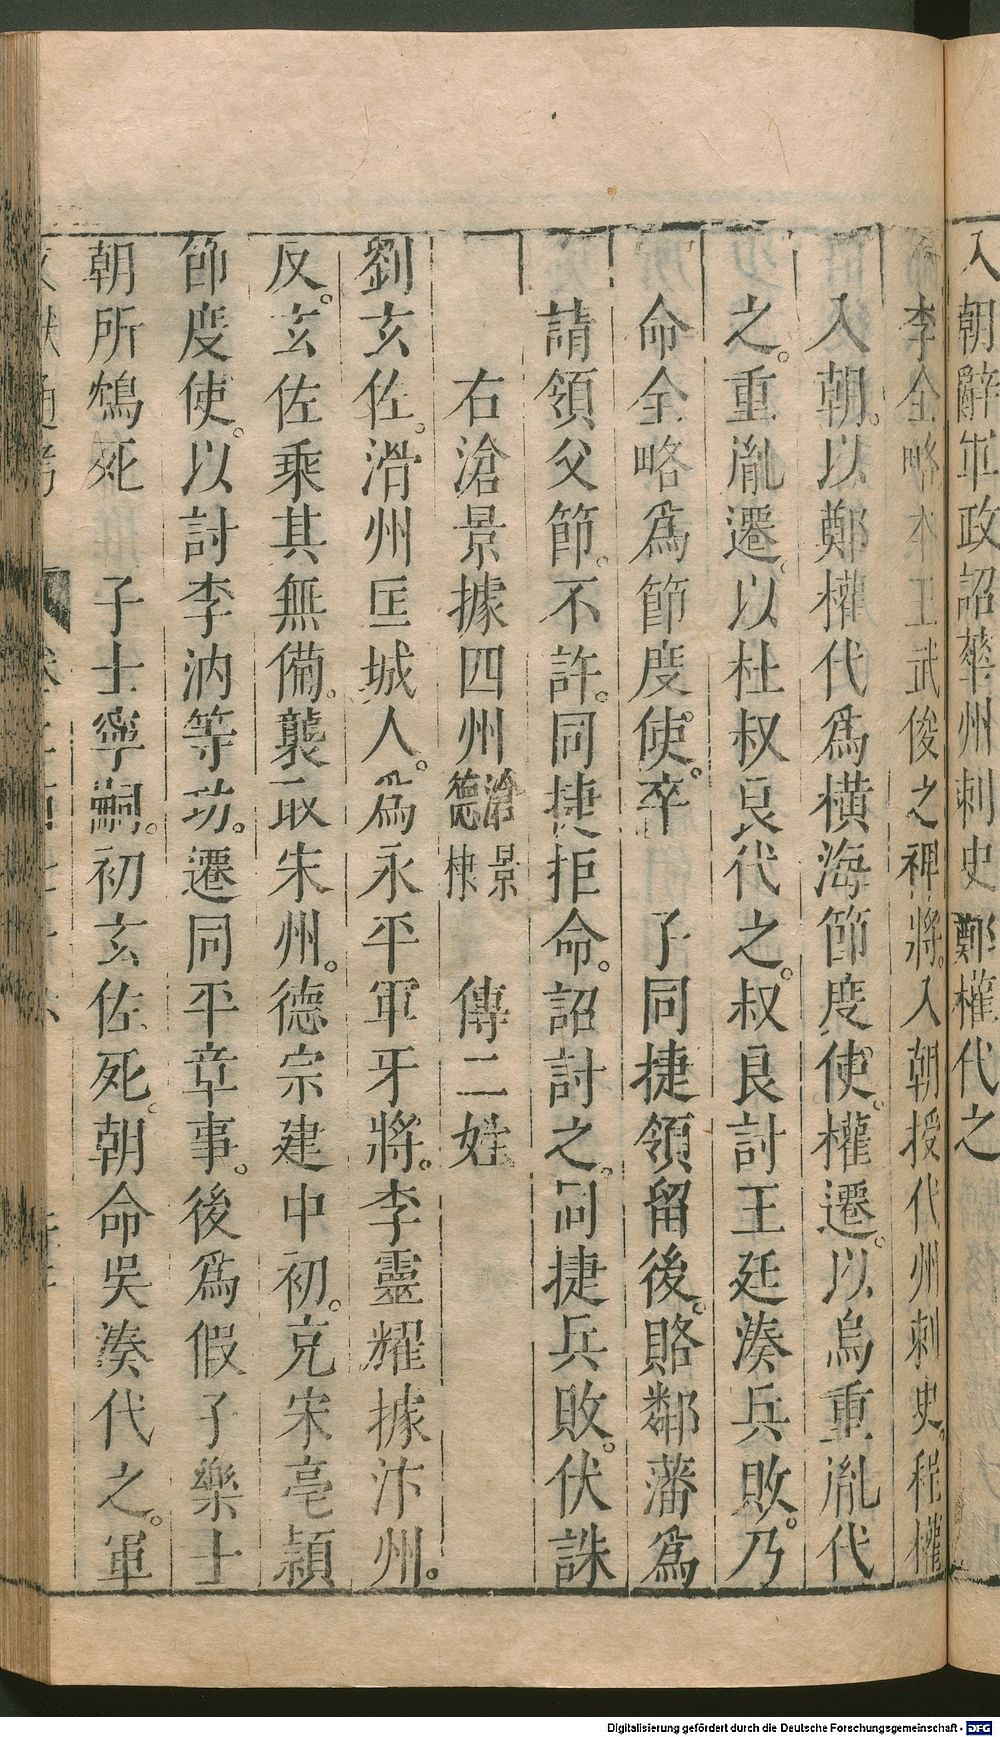 入朝辭軍政詔華州刺史鄭權代之
李全略本王武俊之裨將。入朝授代州刺史。程權
入朝。以鄭權代爲橫海節度使。權遷。以烏重胤代
之。重胤遷。以杜叔良代之。叔良討王廷湊兵敗。乃
命全略爲節度使。卒 子同捷領留後。賂鄰藩爲
請領父節。不許。同捷拒命。詔討之。同捷兵敗。伏誅
右滄景據四州滄景德棣 傳二姓。
劉玄佐。滑州匡城人。爲永平軍牙將。李靈耀據汴州。
反。玄佐乘其無備。襲取宋州。德宗建中初。克宋亳潁
節度使。以討李汭等功。遷同平章事。後爲假子樂士
朝所鴆死 子士寧嗣。初玄佐死。朝命吳湊代之。軍
Digitalisierung gefördert durch die Deutsche Forschungsgemeinschaft - DFG